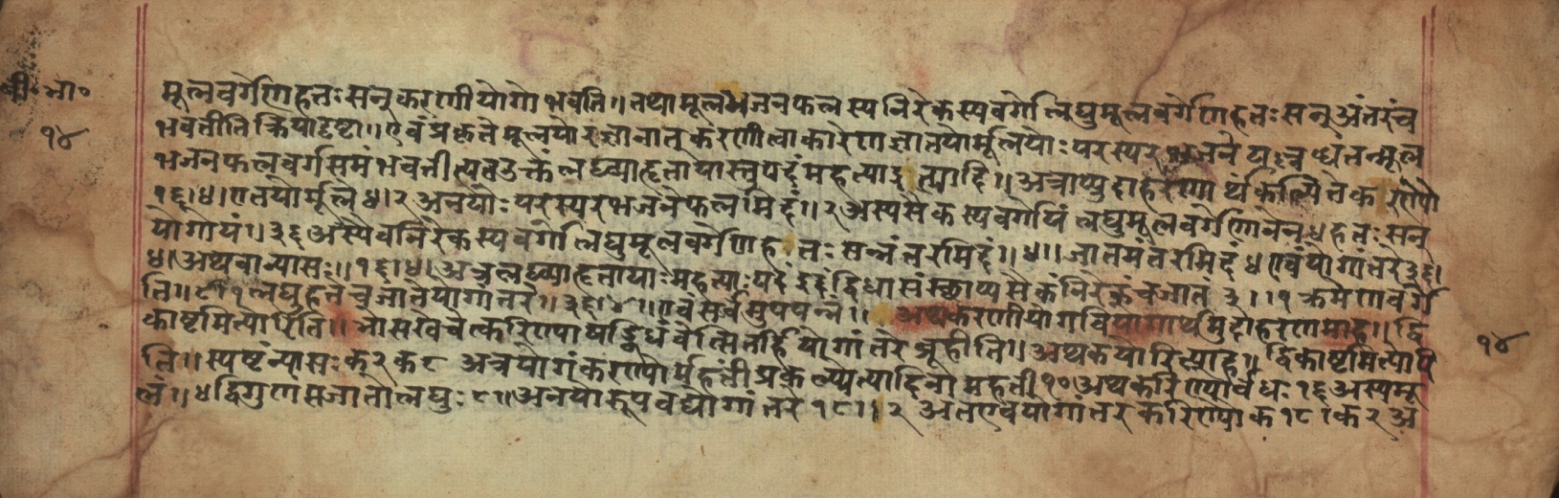 बी॰ भा॰
१४
मूलवर्गेण हतः सन् करणीयोगो भवति॥ तथा मूलभजनफलस्य निरेकस्य वर्गो लघुमूलवर्गेण हतः सन् अंतरं च
भवतीति क्रिया दृष्टा॥ एवं प्रकृते मूलयोरज्ञानात् करणीत्वाकारेण ज्ञातयोर्मूलयोः परस्परभजने यत्नब्धं तन्मूल
भजनफलवर्गसमं भवतीत्यत उक्तं लघ्व्या हृतायास्तु पदं महत्या इत्यादि॥ अत्राप्युदाहरणार्थं कल्पिते करण्यौ
१६।४। एतयोर्मूले ४।२ अनयोः परस्परभजने फलमिदं॥२ अस्य सैकस्य वर्गोयं लघुमूलवर्गेणानेन ४ हतः सन्
योगोयं। ३६ अस्यैव निरेकस्य वर्गो लघुमूलवर्गेण हतः सन्नंतरमिदं॥४॥ जातमंतरमिदं ४ एवं योगांतरे ३६।
४। अथवा न्यासः॥१६।४। अत्र लघ्व्या हृतायाः महत्याः पदं इदं द्विधा संस्थाप्य सैकं निरेकं च जातं ३।।१ क्रमेण वर्गे
ति॥९।१ लघुहते च जाते योगांतरे॥३६।४॥ एवं सर्वमुपपन्नं॥ अथ करणीयोगवियोगार्थमुदाहरणमाह॥ द्वि
काष्टमित्योरिति॥ भो सखे चेत्करिण्याः षड्विधं वेत्सि तर्हि योगांतरे ब्रूहीति॥ अथ कयोरित्याह॥ द्विकाष्टमित्योरि
ति॥ स्पष्टं न्यासः क २ क ८ अत्र योगं करण्योर्महतीं प्रकल्प्येत्यादिना महती १० अथ करिण्योर्वधः १६ अस्य मू
लं॥४ द्विगुणं सजातो लघुः ८॥ अनयो रूपवद्योगांतरे १८॥२ अत एव योगांतरे करिण्यौ क १८। क २ अ
१४